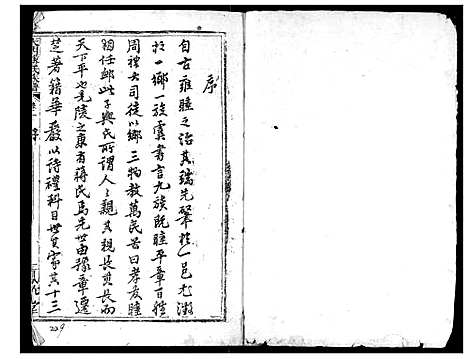 序
自古雍睦之治其端先肇於一邑尤漸
於一鄉一族虞書言九族既睦平章百姓
周禮大司徒以鄉三物教萬民首曰孝友睦
婣任卹此子輿氏所謂人人親其親長其長而
天下平也毛陵之東有蔣氏焉先世由豫章遷
芝著籍華嚴以待禮科目世其家其十三
229